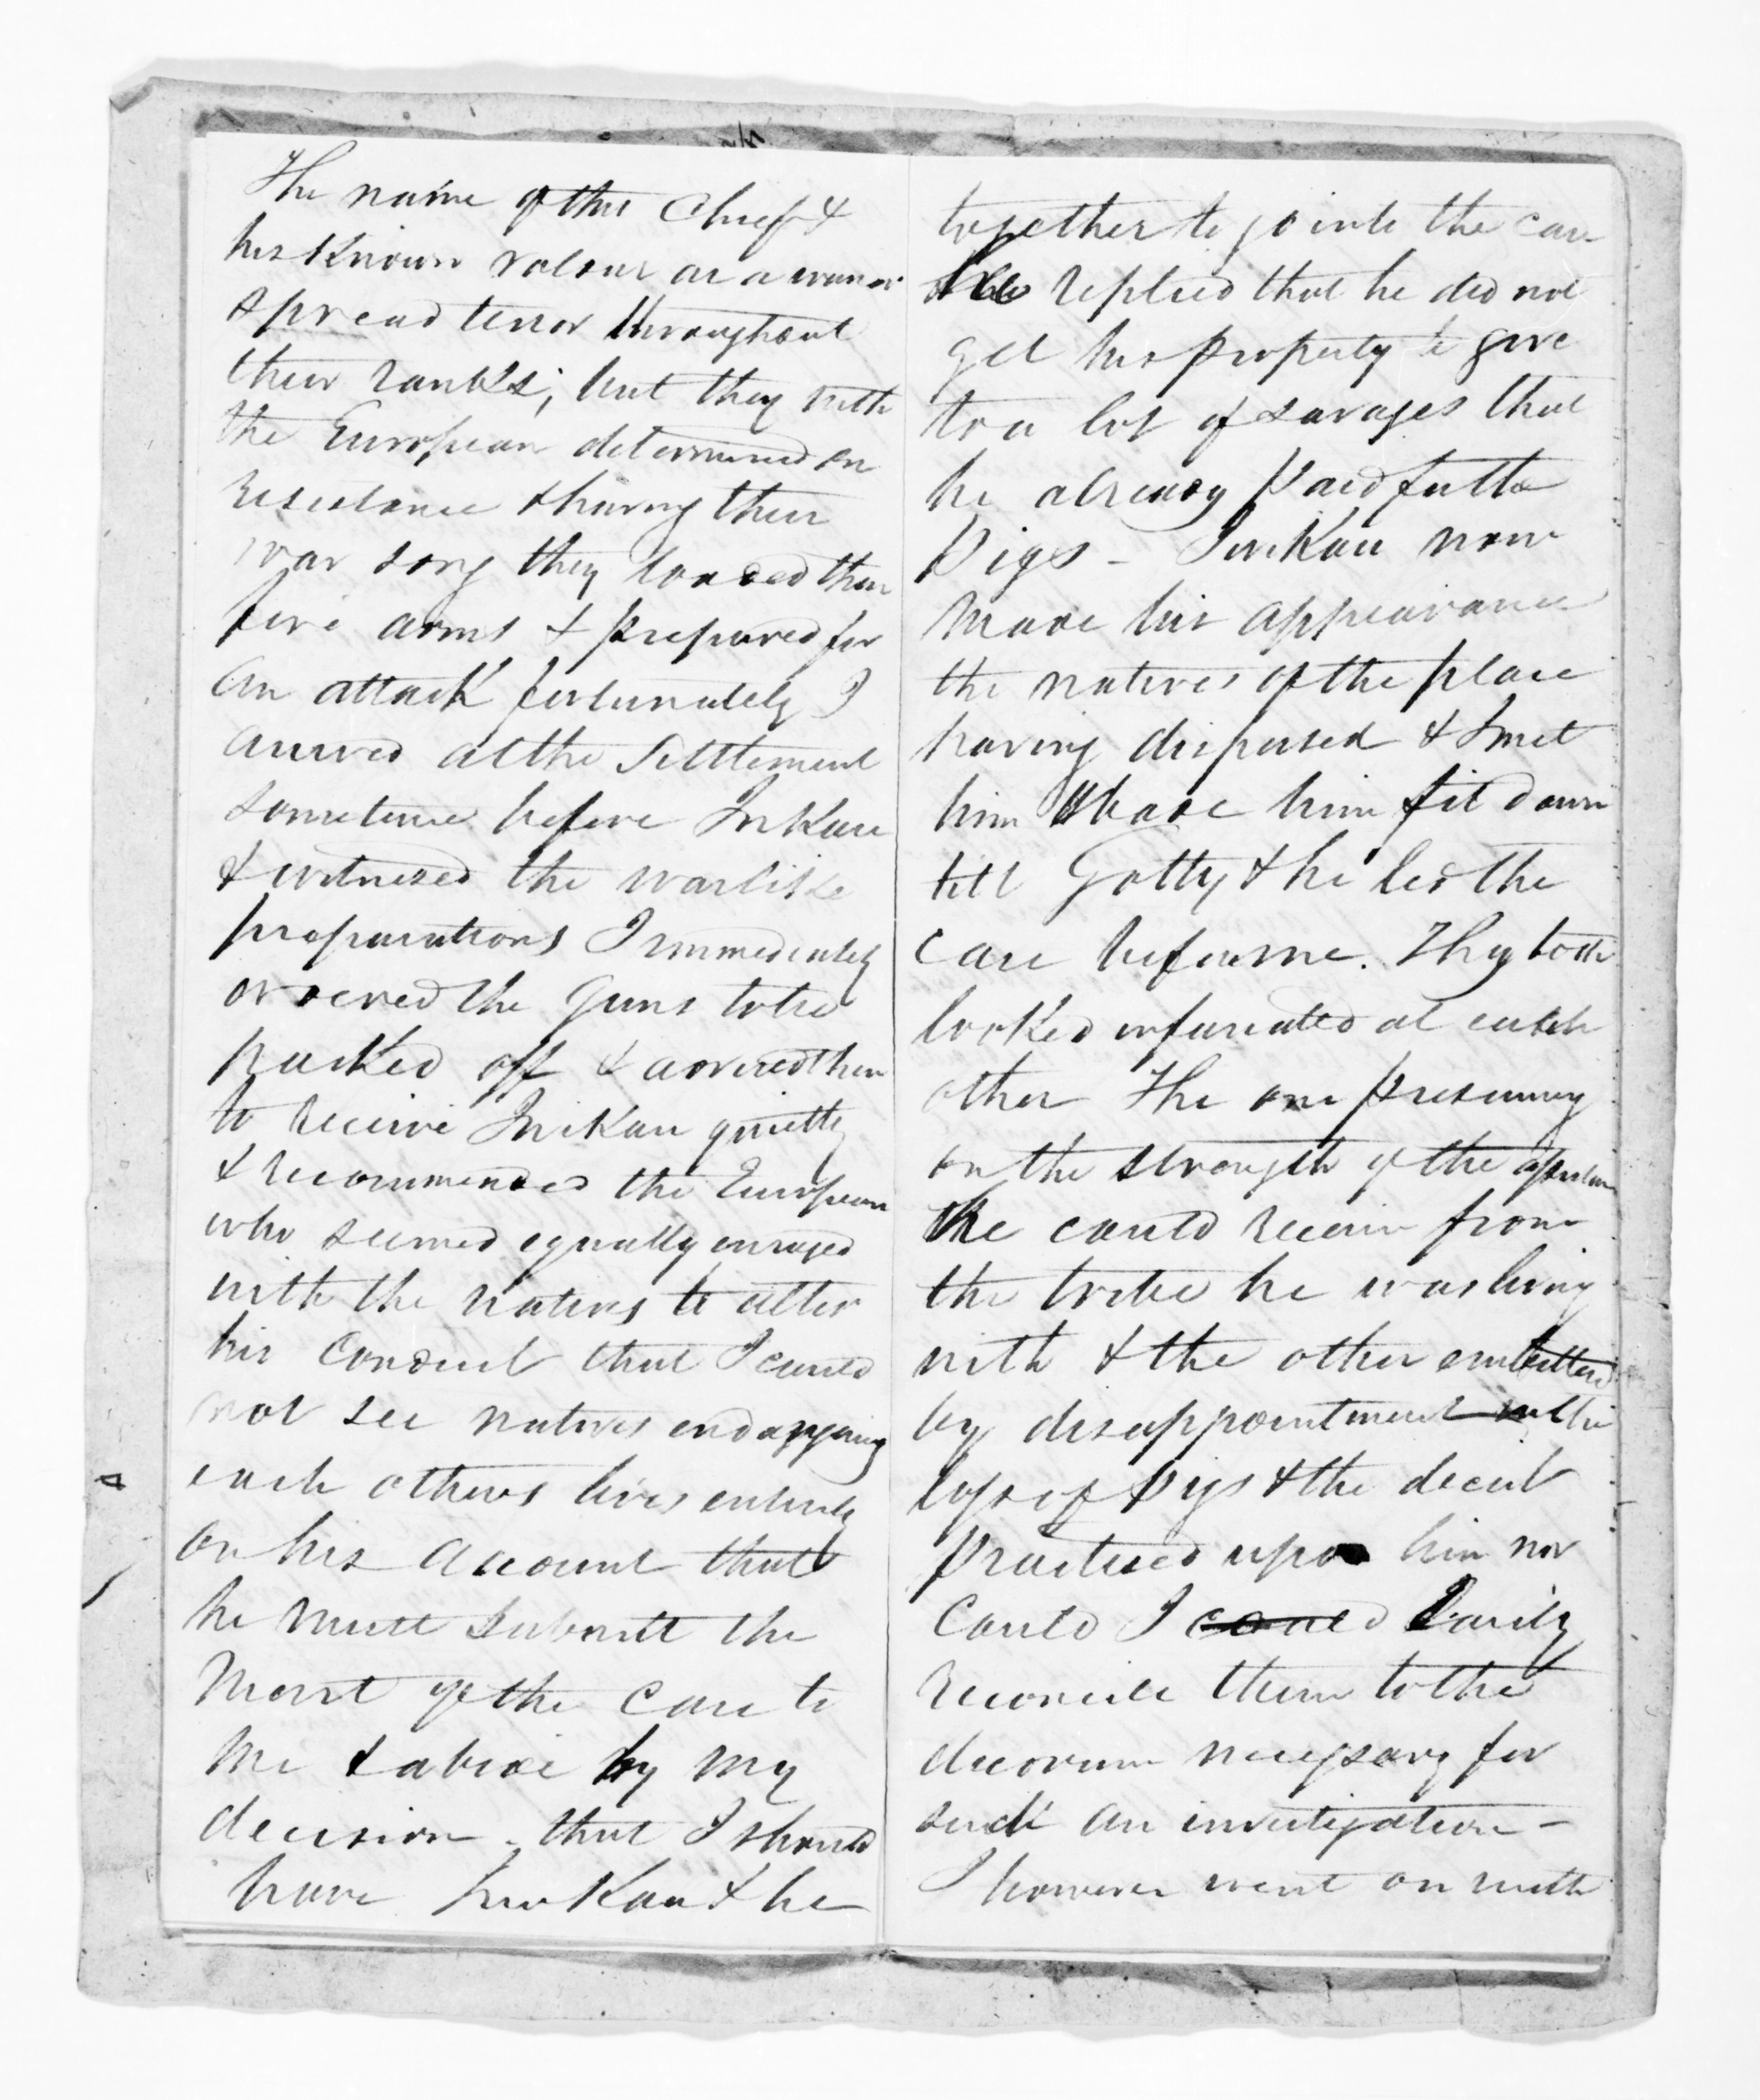 The name of this Chief &
his Known valour as a warrior
spread terror throughout
their ranks; but they with
the European determined on
resistance & having their
war song they loaded their
fire arms & prepared for
an attack fortunately I
arrived at the Settlement
sometime before
& witnessed the warlike
preparations I immediately
ordered the Guns to be
packed off & advised them
to receive quietly
& recommended the European
who seemed equally enraged
with the natives to alter
his conduct that I could
not see natives endangering
each others lives entirely
on his account that
he must submit the
Merit of the Case to
Me & abide by my
decision - that I should
have & he
together to go into the case
He replied that he did not
get his property to give
to a lot of savages that
he already paid for the
Pigs - now
Made his appearance
the natives of the place
having dispersed & I met
him & bade him sit down
till Gotty & he led the
Case before me. They both
looked infuriated at each
other The one presuming
on the strength of the
he could receive from
the tribe he was living
with & the other embittered
by disappointment in the
loss of Pigs & the deceit
practiced upon him nor
Could I could easily
reconcile them to the
decorum necessary for
such an investigation -
I however went on with